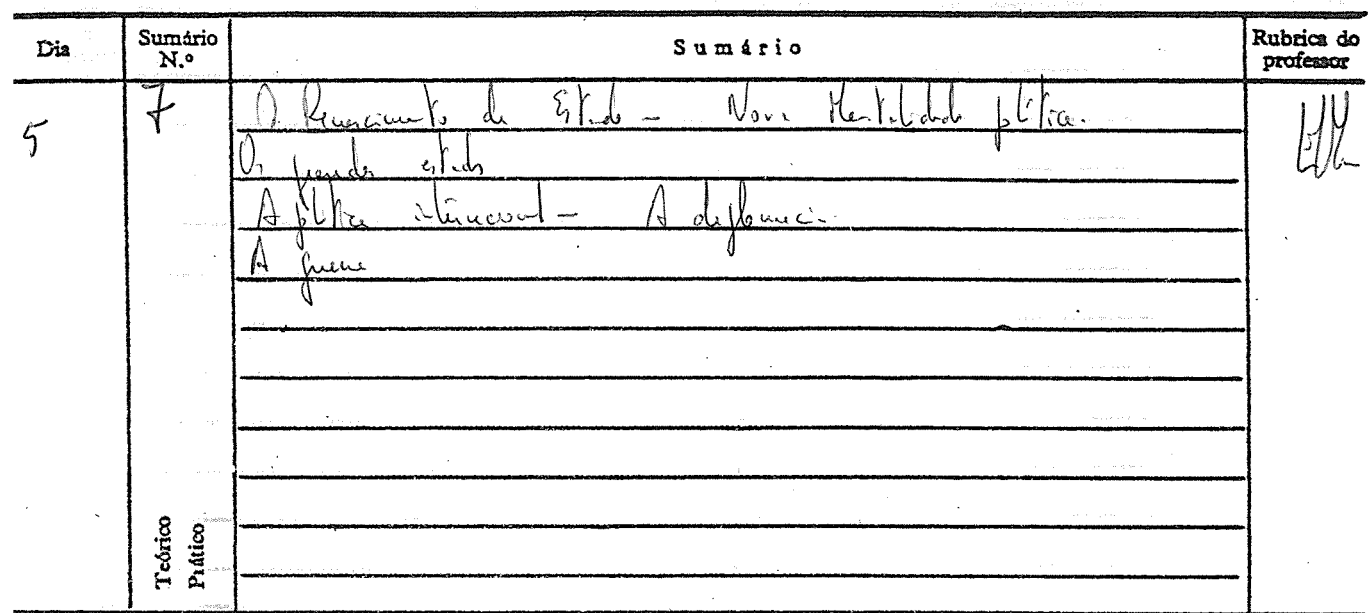 Dia Sumário N.º Sumário Rubrica do professor
5 7 O Renascimento do Estado - Nova Mentalidade política.
Os grandes estados
A política internacional - A diplomacia
A guerra
Teórico
Prático